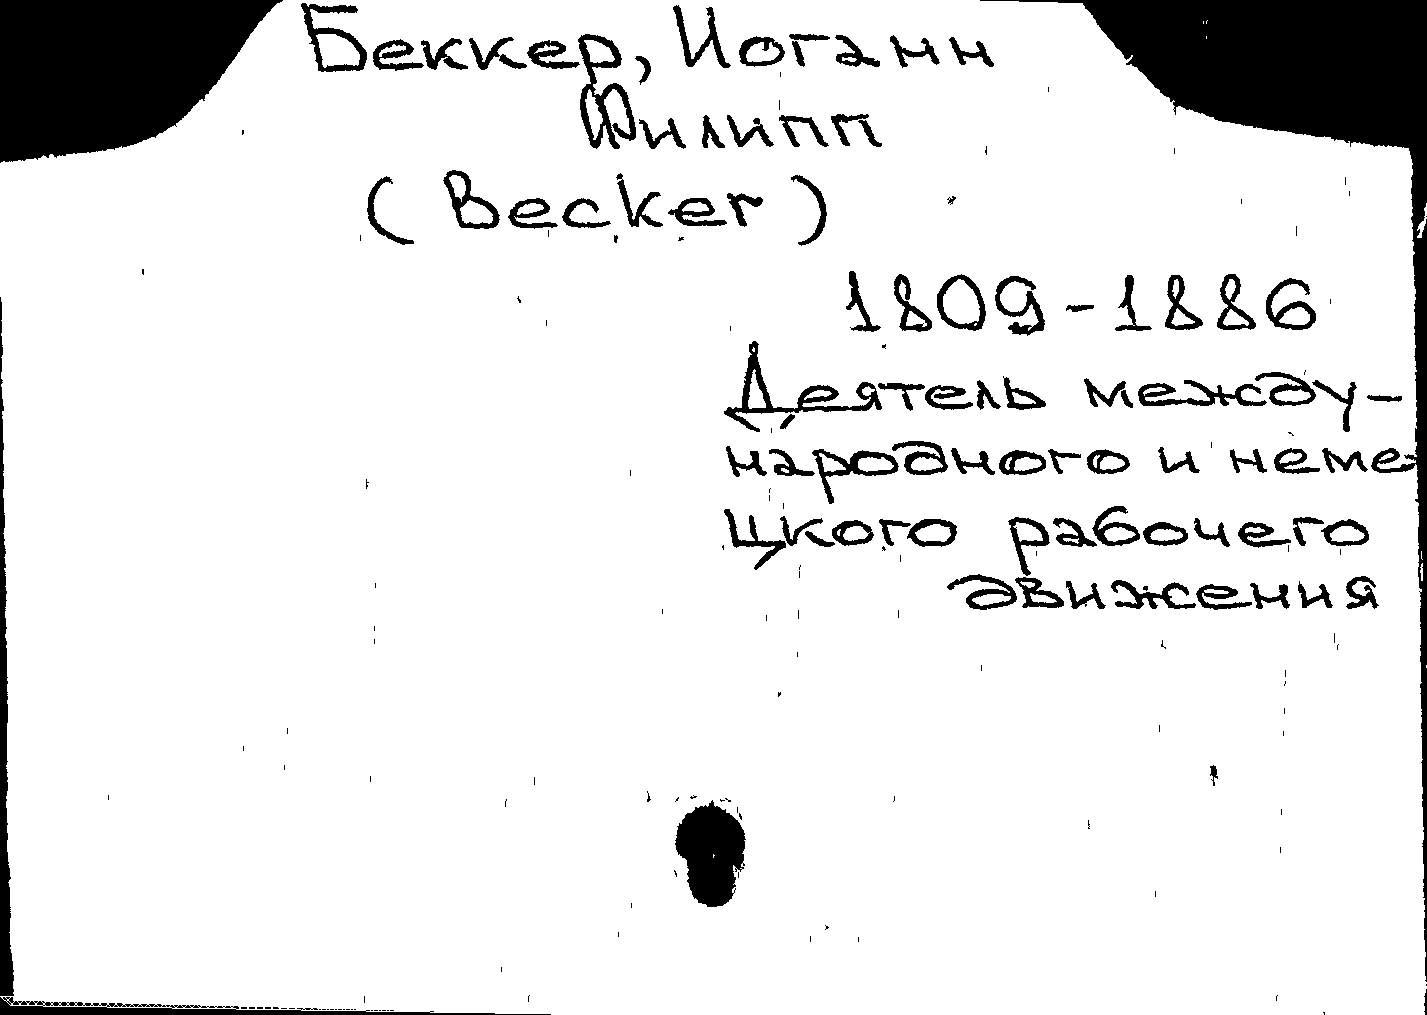 Беккер, Иоганн
Филипп
(Becker)
1809-1886
Деятель между-
народного и неме-
цкого рабочего
движения